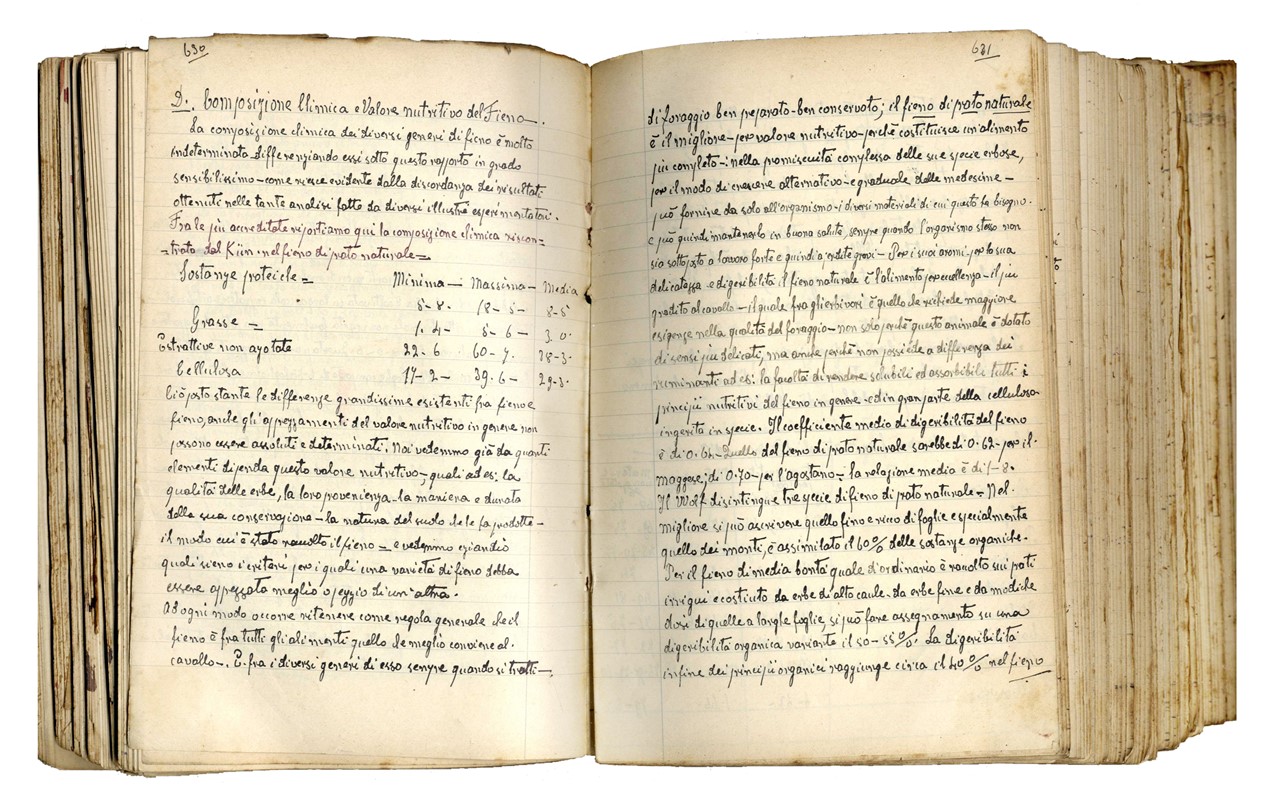 630
D. Composizione Chimica e Valore nutritivo del Fieno—.
La composizione chimica dei diversi generi di fieno è molto
indeterminata differenziando essi sotto questo rapporto in grado
sensibilissimo – come riesce evidente dalla discordanza dei risultati
ottenuti nelle tante analisi fatte da diversi illustri esperimentatori.
Fra le più accreditate riportiamo qui la composizione chimica riscon=
=trata dal Kün nel fieno di prato naturale =
Sostanze proteiche = Minima — Massima — Media
5-8- 18-5- 8-5
Grasse = 1.4- 5-6- 3.0.
Estrattive non azotate 22-6 60-7. 38-3.
Cellulosa 17-2- 39.6- 29-3.
Ciò posto stante le differenze grandissime esistenti fra fieno e
fieno, anche gli apprezzamenti del valore nutritivo in genere non
possono essere assoluti e determinati. Noi vedemmo già da quanti
elementi dipenda questo valore nutritivo, quali ad es: la
qualità delle erbe, la loro provenienza – la maniera e durata
della sua conservazione – la natura del suolo che le ha prodotte –
il modo cui è stato raccolto il fieno = e vedemmo eziandio
quali sieno i criteri per i quali una varietà di fieno debba
essere apprezzata meglio o peggio di un'altra.
Ad ogni modo occorre ritenere come regola generale che il
fieno è fra tutti gli alimenti quello che meglio conviene al
cavallo –. E fra i diversi generi di esso sempre quando si tratti —
631
di foraggio ben preparato – ben conservato; il fieno di prato naturale
è il migliore – per valore nutritivo – perchè costituisce un alimento
più completo –: nella promiscuità complessa delle sue specie erbose,
per il modo di crescere alternativo – e graduale delle medesime –
può fornire da solo all'organismo – i diversi materiali di cui questo ha bisogno.
e può quindi mantenerlo in buona salute, sempre quando l'organismo stesso non
sia sottoposto a lavoro forte e quindi a perdite gravi – Per i suoi aromi, per la sua
delicatezza e digeribilità il fieno naturale è l'alimento per eccellenza – il più
gradito al cavallo – il quale fra gli erbivori è quello che richiede maggiore
esigenze nella qualità del foraggio – non solo perchè questo animale è dotato
di sensi più delicati, ma anche perchè non possiede a differenza dei
ruminanti ad es: la facoltà di rendere solubili ed assorbibili tutti i
principii nutritivi del fieno in genere – ed in gran parte della cellulosa
ingerita in specie. Il coefficiente medio di digeribilità del fieno
è di 0.64 – Quello del fieno di prato naturale sarebbe di 0.62 – per il
maggese; di 0.70 – per l'agostano – la relazione media è di 1-8.
Il Wolf disintingue tre specie di fieno di prato naturale = Nel
migliore si può ascrivere quello fino e ricco di foglie e specialmente
quello dei monti, è assimilato il 60% delle sostanze organiche.
Per il fieno di media bontà quale d'ordinario è raccolto sui prati
irrigui e costiuto da erbe di alto caule – da erbe fine e da modiche
dosi di quelle a larghe foglie, si può fare assegnamento su una
digeribilità organica variante il 50-55%. La digeribilità
infine dei principii organici raggiunge circa il 40% nel fieno